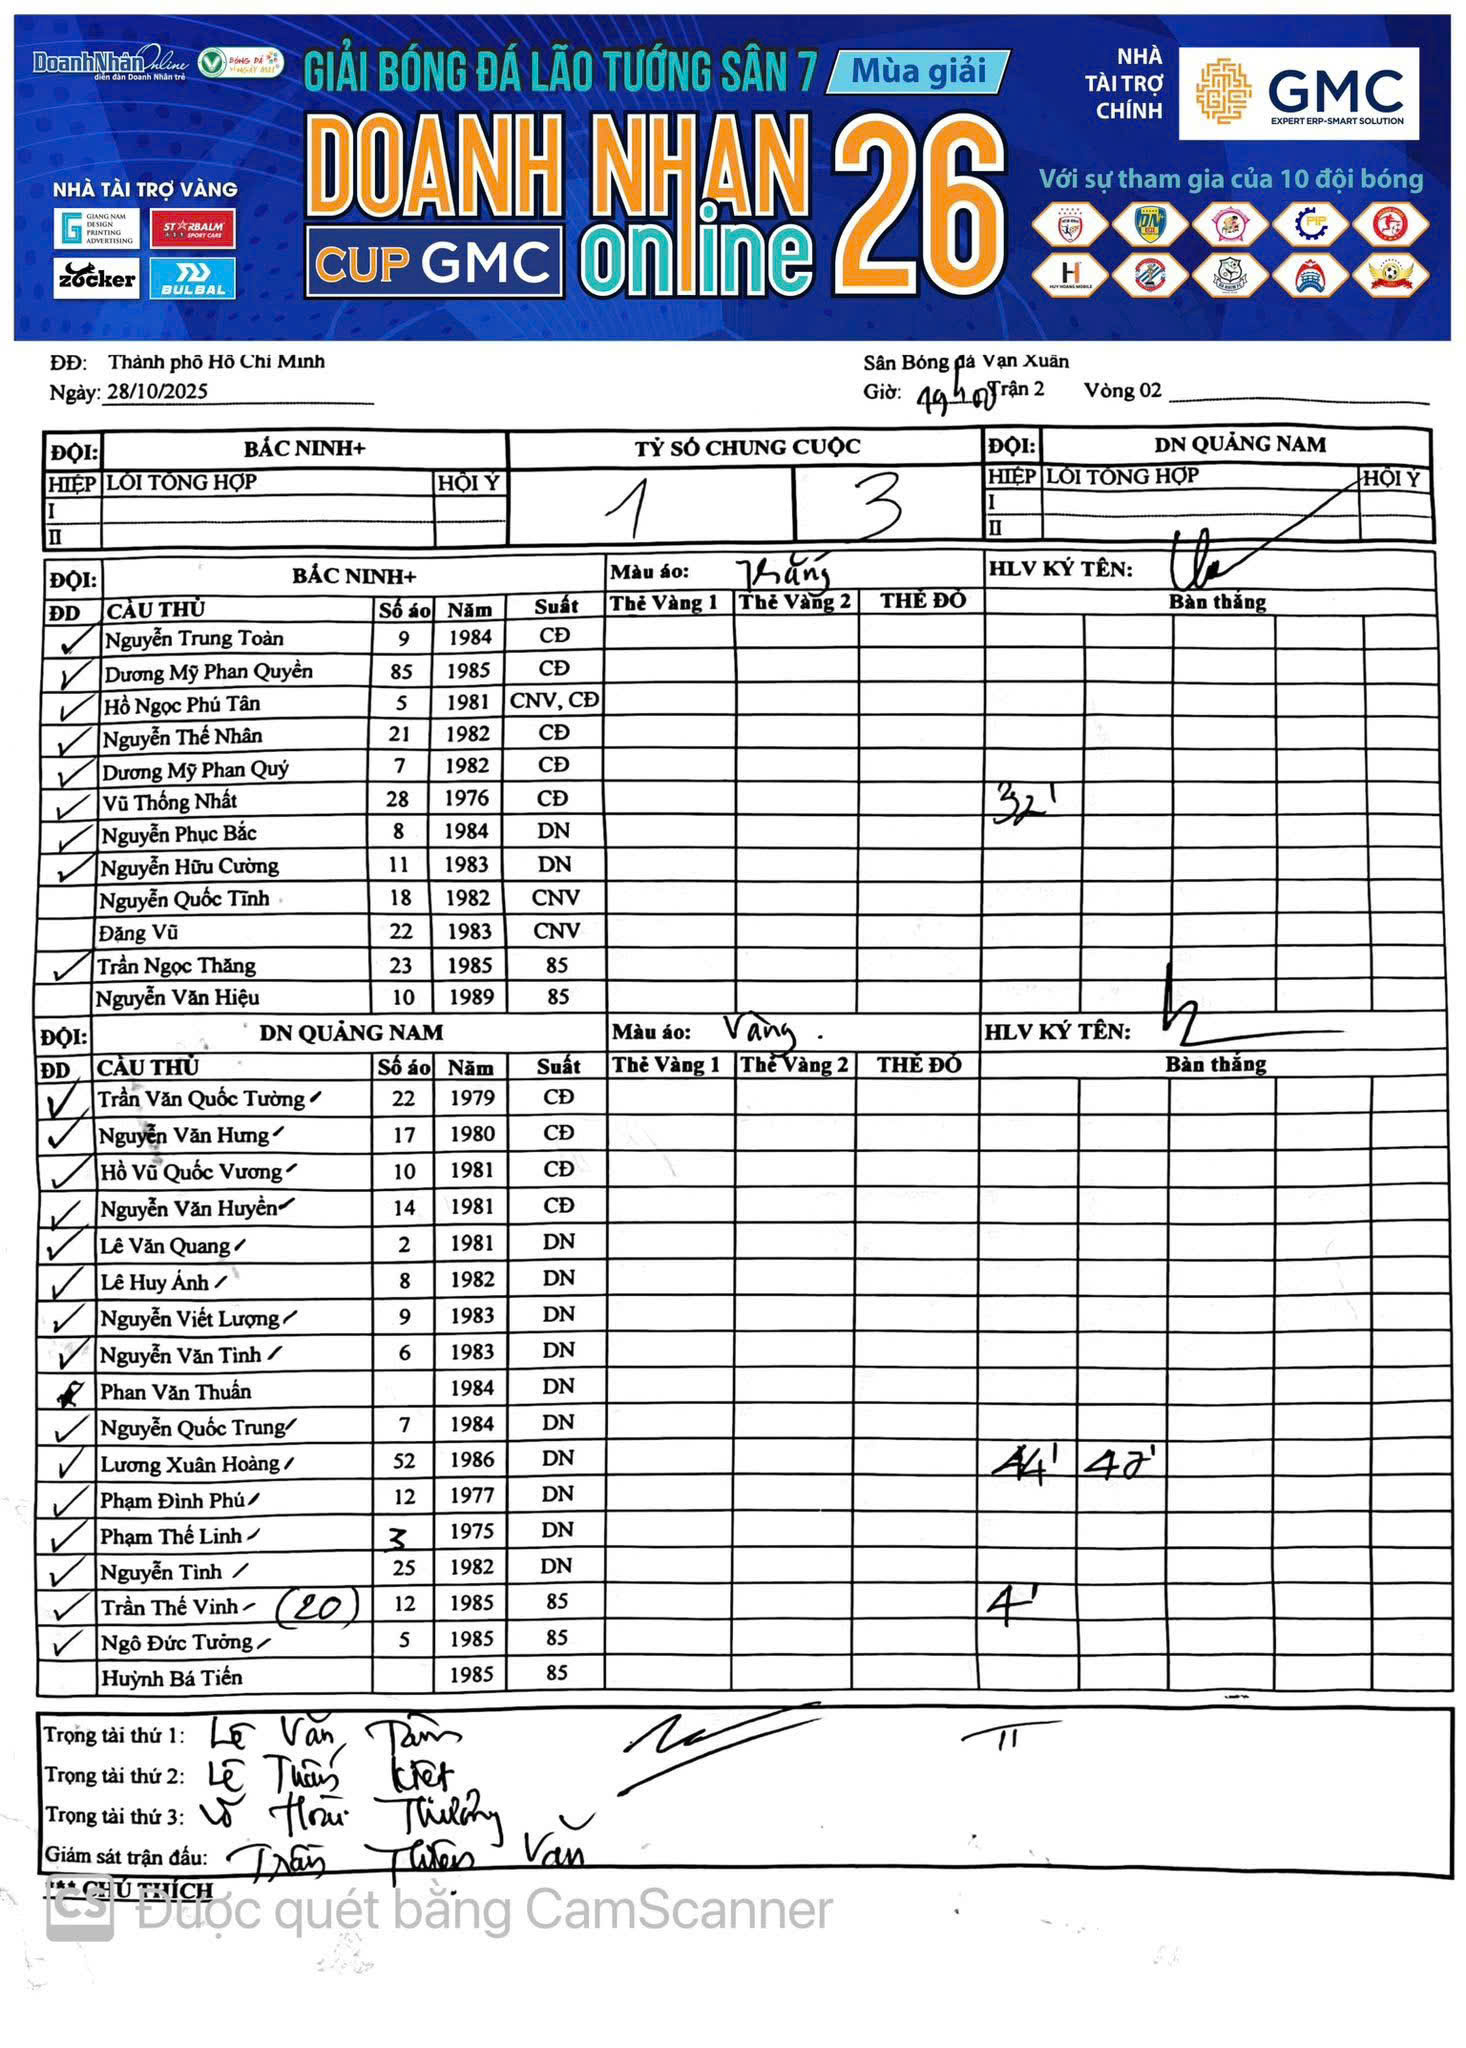 DoanhNhânOnline
diễn đàn Doanh Nhân trẻ
GIẢI BÓNG ĐÁ LÃO TƯỚNG SÂN 7
Mùa giải
DOANH NHAN
CUP GMC online
26
NHÀ TÀI TRỢ VÀNG
GIANG NAM DESIGN PRINTING ADVERTISING
STARBALM SPORT CARE
zocker
BULBAL
NHÀ TÀI TRỢ CHÍNH
GMC
EXPERT ERP-SMART SOLUTION
Với sự tham gia của 10 đội bóng
PIP
HUY HOANG MOBILE
ĐĐ: Thành phố Hồ Chí Minh Sân Bóng đá Vạn Xuân
Ngày: 28/10/2025 Giờ: 19h00 Trận 2 Vòng 02
ĐỘI: BẮC NINH+ TỶ SỐ CHUNG CUỘC ĐỘI: DN QUẢNG NAM
HIỆP LỖI TỔNG HỢP HỘI Ý 1 3 HIỆP LỖI TỔNG HỢP HỘI Ý
I I
II II
ĐỘI: BẮC NINH+ Màu áo: Trắng HLV KÝ TÊN:
ĐD CẦU THỦ Số áo Năm Suất Thẻ Vàng 1 Thẻ Vàng 2 THẺ ĐỎ Bàn thắng
✓ Nguyễn Trung Toàn 9 1984 CĐ
✓ Dương Mỹ Phan Quyền 85 1985 CĐ
✓ Hồ Ngọc Phú Tân 5 1981 CNV, CĐ
✓ Nguyễn Thế Nhân 21 1982 CĐ
✓ Dương Mỹ Phan Quý 7 1982 CĐ
✓ Vũ Thống Nhất 28 1976 CĐ 32'
✓ Nguyễn Phục Bắc 8 1984 DN
✓ Nguyễn Hữu Cường 11 1983 DN
Nguyễn Quốc Tĩnh 18 1982 CNV
Đặng Vũ 22 1983 CNV
✓ Trần Ngọc Thăng 23 1985 85
Nguyễn Văn Hiệu 10 1989 85
ĐỘI: DN QUẢNG NAM Màu áo: Vàng. HLV KÝ TÊN:
ĐD CẦU THỦ Số áo Năm Suất Thẻ Vàng 1 Thẻ Vàng 2 THẺ ĐỎ Bàn thắng
✓ Trần Văn Quốc Tường 22 1979 CĐ
✓ Nguyễn Văn Hưng 17 1980 CĐ
✓ Hồ Vũ Quốc Vương 10 1981 CĐ
✓ Nguyễn Văn Huyền 14 1981 CĐ
✓ Lê Văn Quang 2 1981 DN
✓ Lê Huy Ánh 8 1982 DN
✓ Nguyễn Viết Lượng 9 1983 DN
✓ Nguyễn Văn Tình 6 1983 DN
Phan Văn Thuấn 1984 DN
✓ Nguyễn Quốc Trung 7 1984 DN
✓ Lương Xuân Hoàng 52 1986 DN 44' 42'
✓ Phạm Đình Phú 12 1977 DN
✓ Phạm Thế Linh 3 1975 DN
✓ Nguyễn Tình 25 1982 DN
✓ Trần Thế Vinh (20) 12 1985 85 4'
✓ Ngô Đức Tưởng 5 1985 85
Huỳnh Bá Tiến 1985 85
Trọng tài thứ 1: Lê Văn Tâm
Trọng tài thứ 2: Lê Tuấn Kiệt
Trọng tài thứ 3: Võ Hoài Thương
Giám sát trận đấu: Trần Thiện Văn
*** CHÚ THÍCH
CS Được quét bằng CamScanner